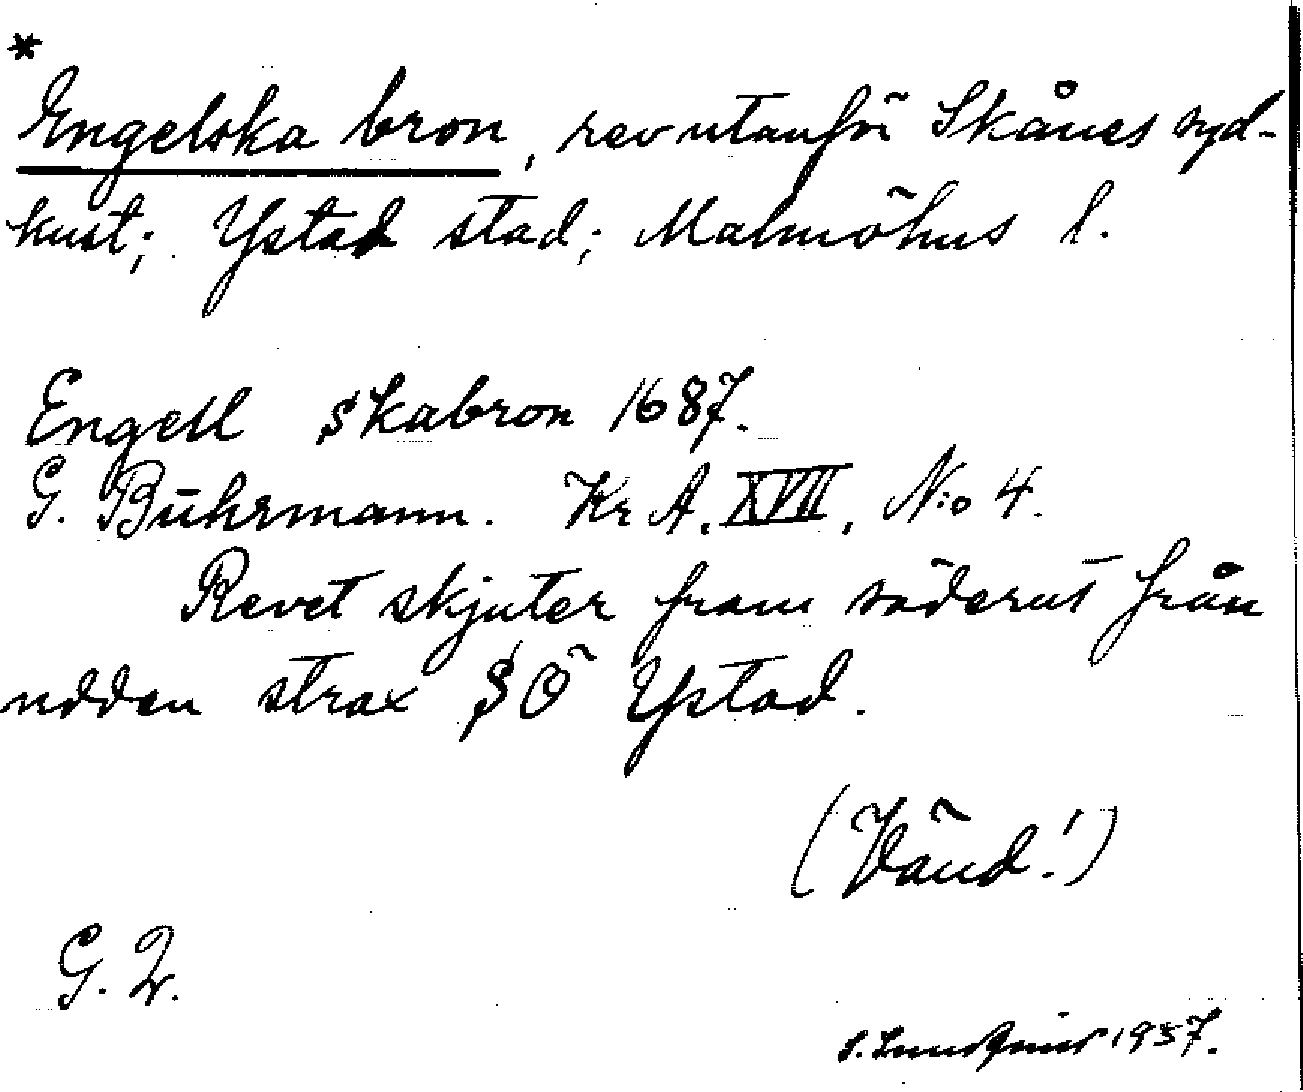 *
Engelska bron, rev utanför Skånes syd-
kust; Ystad stad; Malmöhus l.
Engell skabron 1687.
G. Buhrmann. Kr A. XVII, N:o 4.
Revet skjuter fram söderut från
udden strax SÖ Ystad.
(Vänd!)
G. 2.
S. Lundquist 1957.